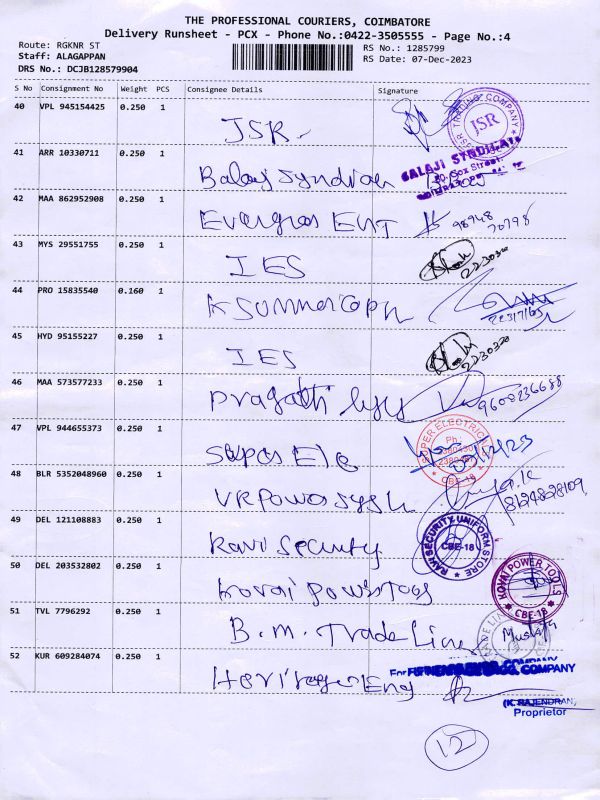 THE PROFESSIONAL COURIERS, COIMBATORE
Delivery Runsheet - PCX - Phone No.:0422-3505555 - Page No.:4
Route: RGKNR ST
RS No.: 1285799
Staff: ALAGAPPAN
RS Date: 07-Dec-2023
DRS No.: DCJB128579904
S No Consignment No Weight PCS Consignee Details Signature
40 VPL 945154425 0.250 1 JSR
JSR TRADING COMPANY
JSR
41 ARR 10330711 0.250 1 Balaji Syndicate
BALAJI SYNDICATE
Cox Street
42 MAA 862952908 0.250 1 Evergreen ENT 98948
70798
43 MYS 29551755 0.250 1 IES
2230320
44 PRO 15835540 0.160 1
45 HYD 95155227 0.250 1 IES
2230320
46 MAA 573577233 0.250 1 Pragathi 9600236688
47 VPL 944655373 0.250 1 Super Ele
SUPER ELECTRICAL
Ph :
CBE-18
48 BLR 5352048960 0.250 1 VR Power
8124828109
49 DEL 121108883 0.250 1 Ravi Security
RAVI SECURITY UNIFORM STORE
CBE-18
50 DEL 203532802 0.250 1 Kovai Power Tools
KOVAI POWER TOOLS
CBE-18
51 TVL 7796292 0.250 1 B.M. Trade Line Mustafa
52 KUR 609284074 0.250 1 Heritage Eng
For
COMPANY
(K. RAJENDRAN)
Proprietor
12